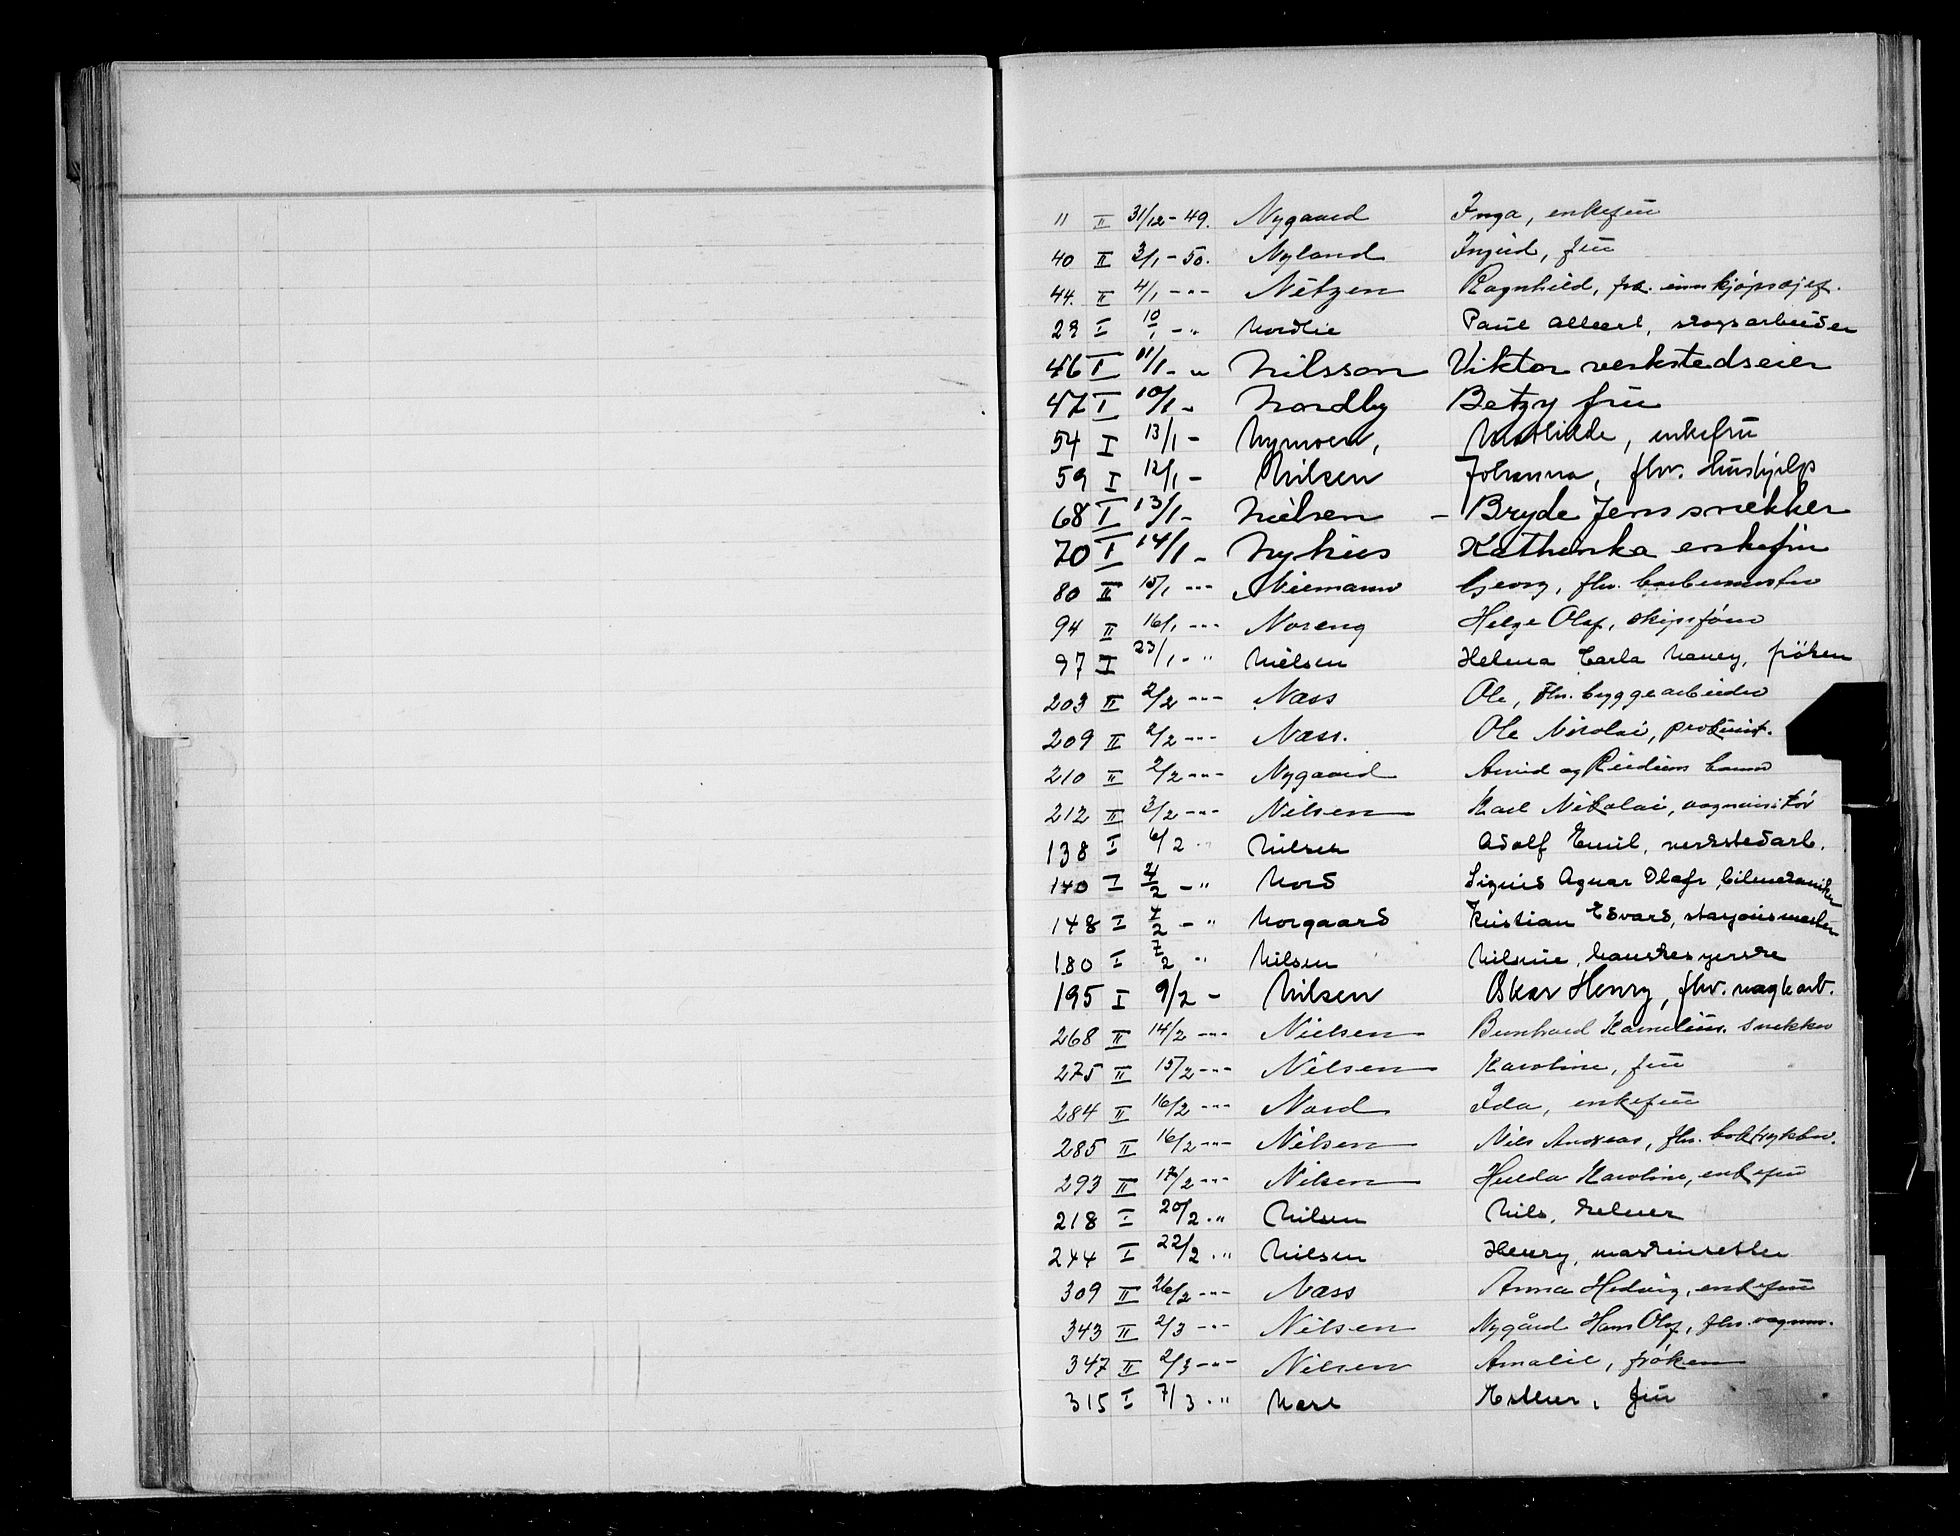 11 II 31/12 - 49. Nygaard Inga, enkefru
40 II 3/1 - 50. Nyland Ingrid, fru
44. II 4/1 - " - Nitzen Ragnhild, fra. innkjøpssjef.
29 I 10/1 - " Nordlie Paul Albert, skogsarbeider
46 I 11/1 - " Nilsson Viktor verkstedseier
47 I 10/1 - Nordby Betzy fru
54 I 13/1 - Nymoen, Mathilde, enkefru
59 I 12/1 - Nilsen Johanna, fhv. Hushjelp
68 I 13/1 - Nielsen - Bryde Jens snekker
70 I 14/1 - Nyhus Kathinka enkefru
80 II 15/1 - " - Niemann Georg, fhv.
94 II 16/1 - " - Noreng Helge Olaf, skipsfører
97 I 23/1 - " Nielsen Helena Carla Nancy, frøken
203 II 2/2 - " - Næss Ole, fhv. byggearbeider
209 II 2/2 - " - Næss. Ole Nicolai, prokurist.
210 II 2/2 - " - Nygaard Arvid og barn
212 II 3/2 - " - Nilsen Karl Nikolai, vognvisitør
138 I 6/2 " Nilsen Adolf Emil, verkstedarb.
140 I 4/2 - " Nord Sigurd Agnar Olaf, bilmekaniker
148 I 4/2 - " Norgaard Kristian Edvard, stasjonsmester
180 I 7/2 " Nilsen hanskesyerske
195 I 9/2 - Nilsen Oskar Henry, fhv. arb.
268 II 14/2 - " - Nielsen Bernhard Kornelius. snekker
275 II 15/2 - " - Nilsen Karoline, fru
284 II 16/2 - " - Nord Ida, enkefru
285 II 16/2 - " - Nilsen Nils Andreas, fhv. boktrykker.
293 II 17/2 - " - Nilsen Hulda Karoline, enkefru
218 I 20/2 . " Nilsen Nils, kelner
244 I 22/2 . " Nilsen Henry, maskinsetter
309 II 26/2 - " - Næss Anna Hedvig, enkefru
343 II 2/3 - " - Nilsen Nygård Hans Olaf, fhv. vognm.
347 II 2/3 - " - Nilsen Amalie, frøken
315 I 7/3 . " Esther, fru